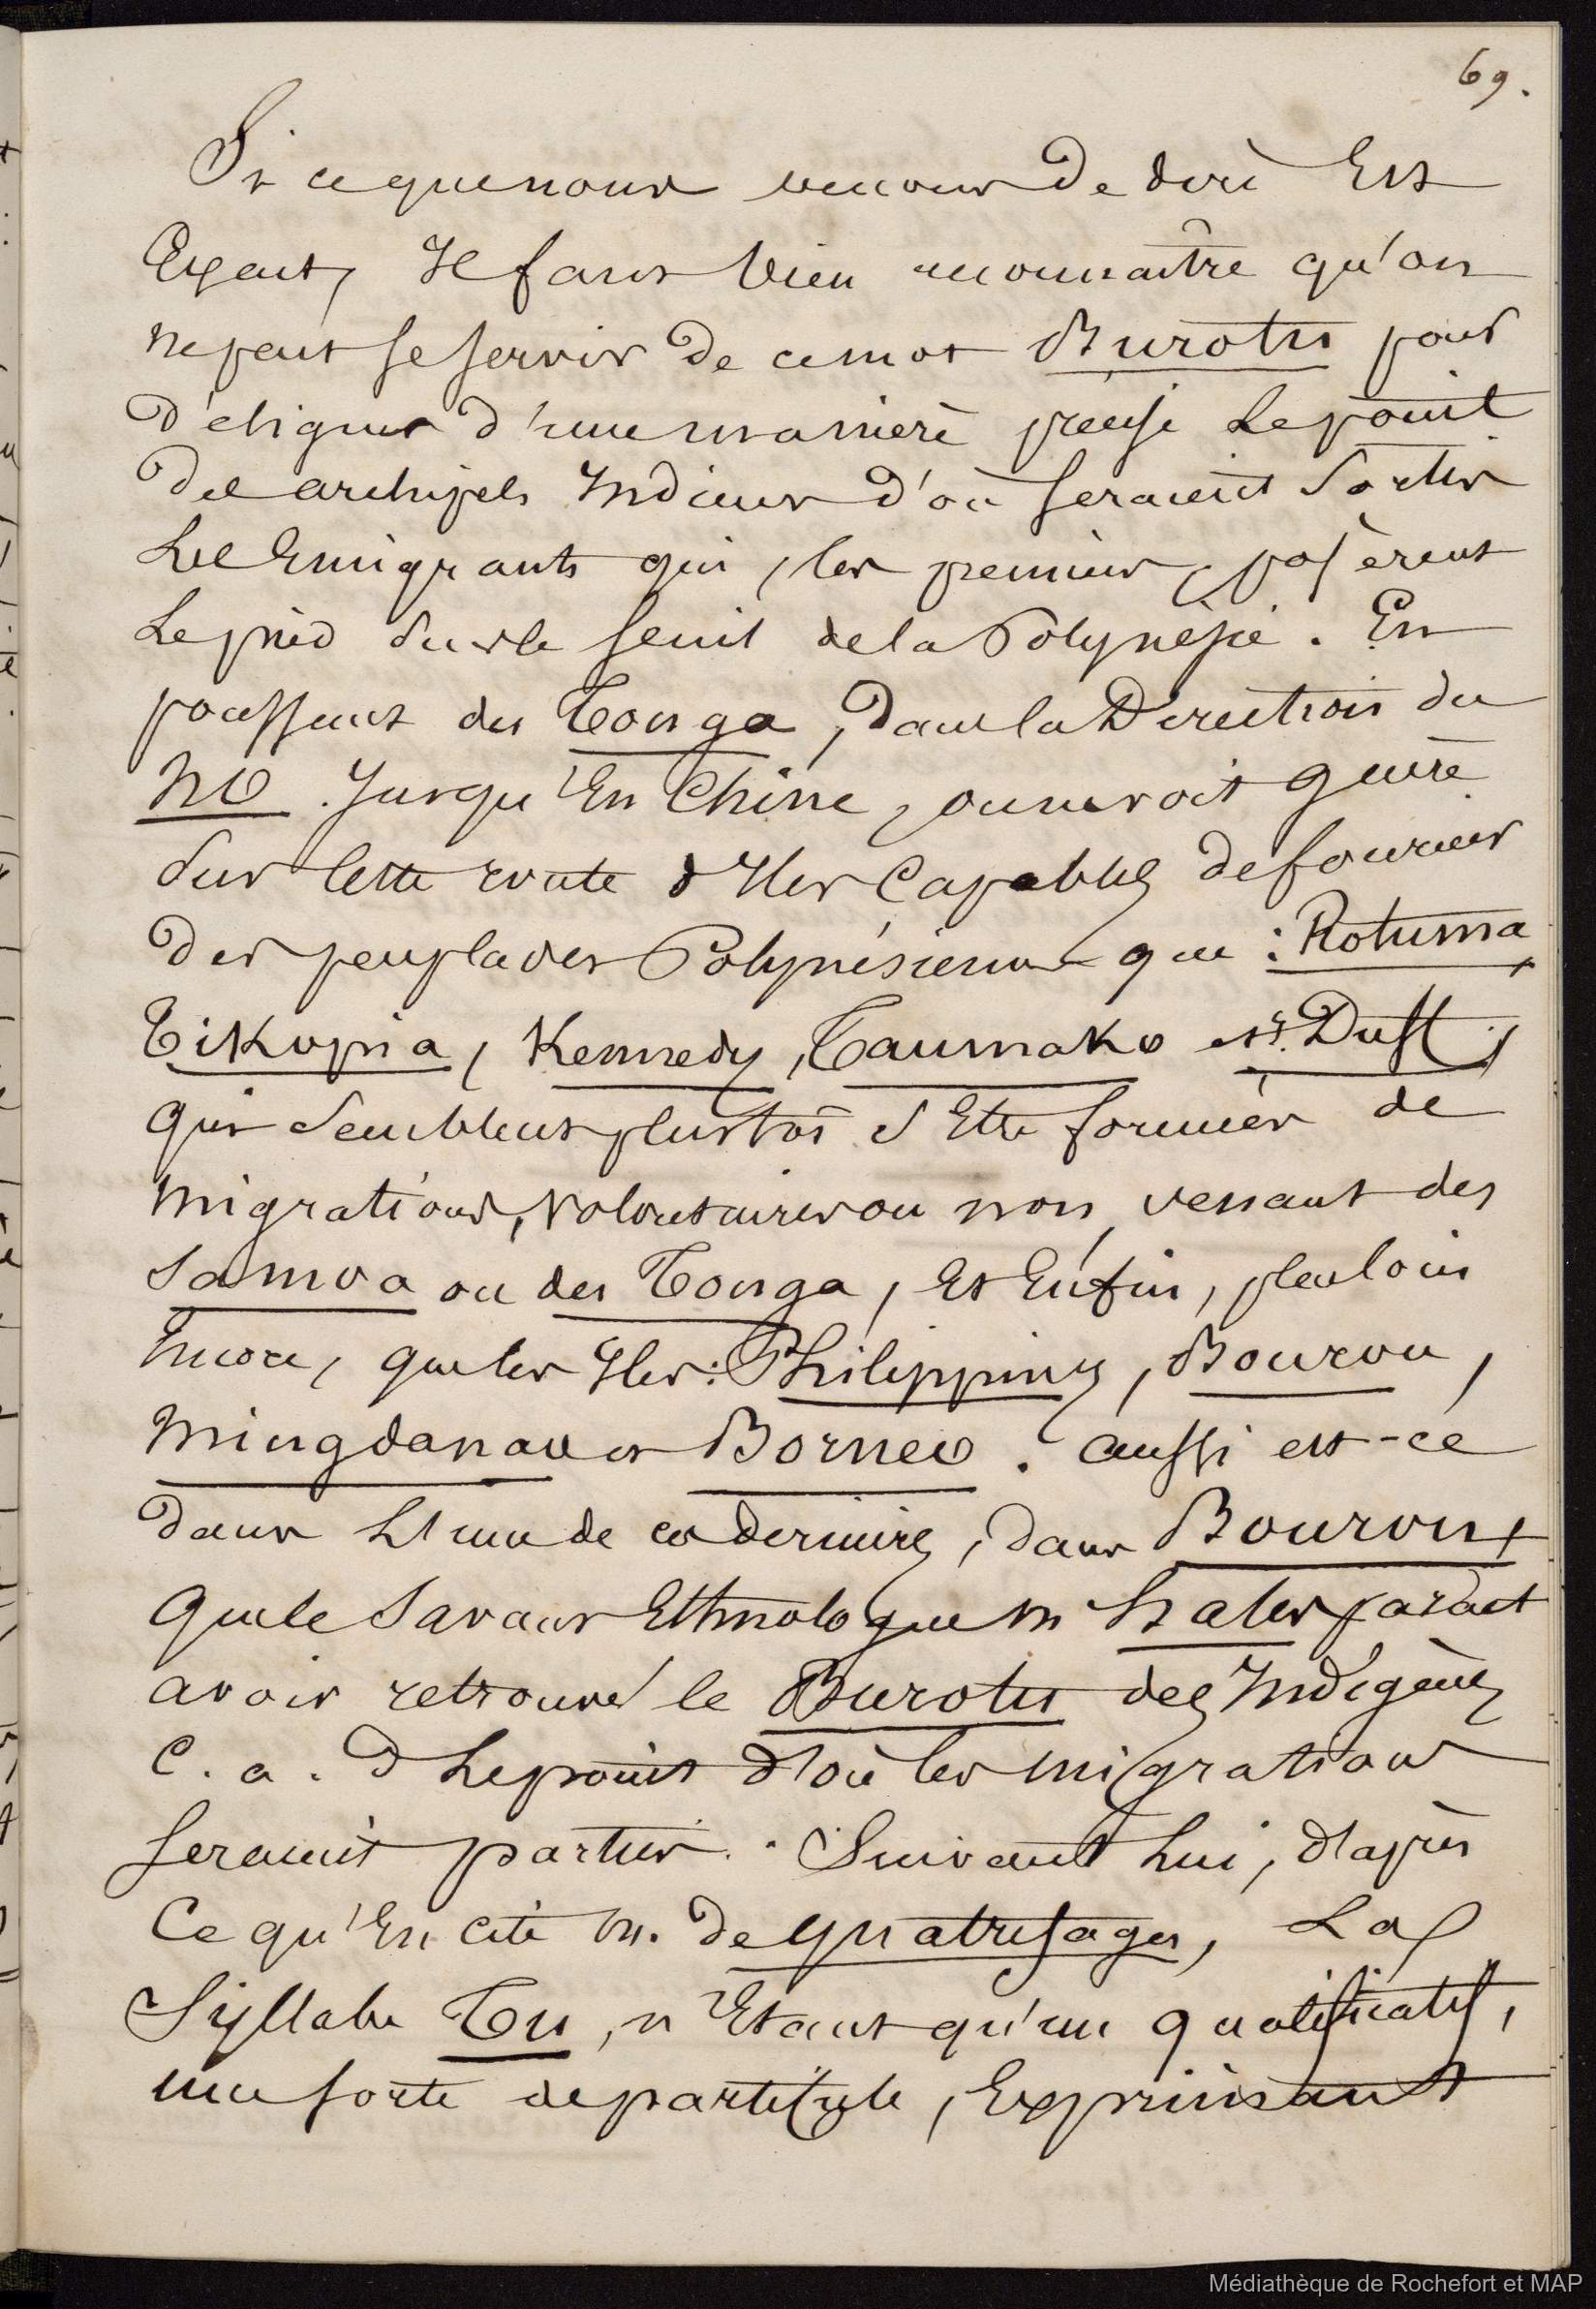 69.
Si ce que nous venons de dire Est
Exact, Il faut bien reconnaître qu'on
ne peut se servir de ce mot Burotu pour
désigner d'une manière précise Le point
des archipels Indiens d'où seraient Sortis
Les Emigrants qui, les premiers, posèrent
Le pied sur le seuil de la Polynésie. En
poussant des Tonga, dans la Direction du
NO. Jusqu'En Chine, on ne voit guère
sur cette route d'Iles Capables de fournir
des peuplades Polynésiennes que : Rotuma,
Tikopia, Kennedy, Taumako et Duff,
qui semblent plustôt s'Etre formées de
migrations, volontaires ou non, venant des
Samoa ou des Tonga, Et Enfin, plus loin
Encore, que les Iles : Philippines, Bourou,
Mingdanao et Borneo. aussi est-ce
dans L'une de ces dernières, dans Bourou,
que le Savant Ethnologue M Hales paraît
avoir retrouvé le Burotu des Indigènes
C. a. d Le point d'où les migrations
seraient parties. Suivant Lui, d'après
Ce qu'En cite M. de Quatrefages, La
Syllabe Tu, n'Etant qu'un qualificatif,
une sorte de particule, Exprimant
Médiathèque de Rochefort et MAP